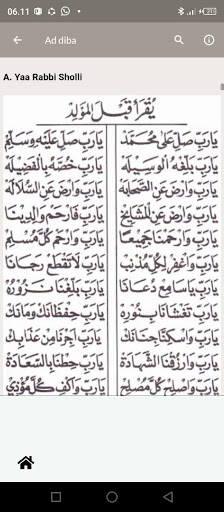 06.11
51
Ad diba
A. Yaa Rabbi Sholli
يُقْرَأُ قَبْلَ الْمَوْلِدِ
يَارَبِّ صَلِّ عَلَى مُحَمَّدْ يَارَبِّ صَلِّ عَلَيْهِ وَسَلِّمْ
يَارَبِّ بَلِّغْهُ الْوَسِيلَهْ يَارَبِّ خُصَّهُ بِالْفَضِيلَهْ
يَارَبِّ وَارْضَ عَنِ الصَّحَابَهْ يَارَبِّ وَارْضَ عَنِ السُّلَالَهْ
يَارَبِّ وَارْضَ عَنِ الْمَشَايِخْ يَارَبِّ فَارْحَمْ وَالِدِينَا
يَارَبِّ وَارْحَمْنَا جَمِيعًا يَارَبِّ وَارْحَمْ كُلَّ مُسْلِمْ
يَارَبِّ وَاغْفِرْ لِكُلِّ مُذْنِبْ يَارَبِّ لَاتَقْطَعْ رَجَانَا
يَارَبِّ يَاسَامِعْ دُعَانَا يَارَبِّ بَلِّغْنَا نَزُورُهْ
يَارَبِّ تَغْشَانَا بِنُورِهْ يَارَبِّ حِفْظَانَكْ وَمَانَكْ
يَارَبِّ وَاسْكِنَّا جِنَانَكْ يَارَبِّ اَجِرْنَا مِنْ عَذَابِكْ
يَارَبِّ وَارْزُقْنَا الشَّهَادَهْ يَارَبِّ حِطْنَا بِالسَّعَادَهْ
يَارَبِّ وَاصْلِحْ كُلَّ مُصْلِحْ يَارَبِّ وَاكْفِ كُلَّ مُؤْذِي